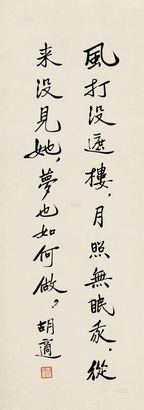 風打没遮樓，月照無眠我，從
来没見她，夢也如何做。胡適